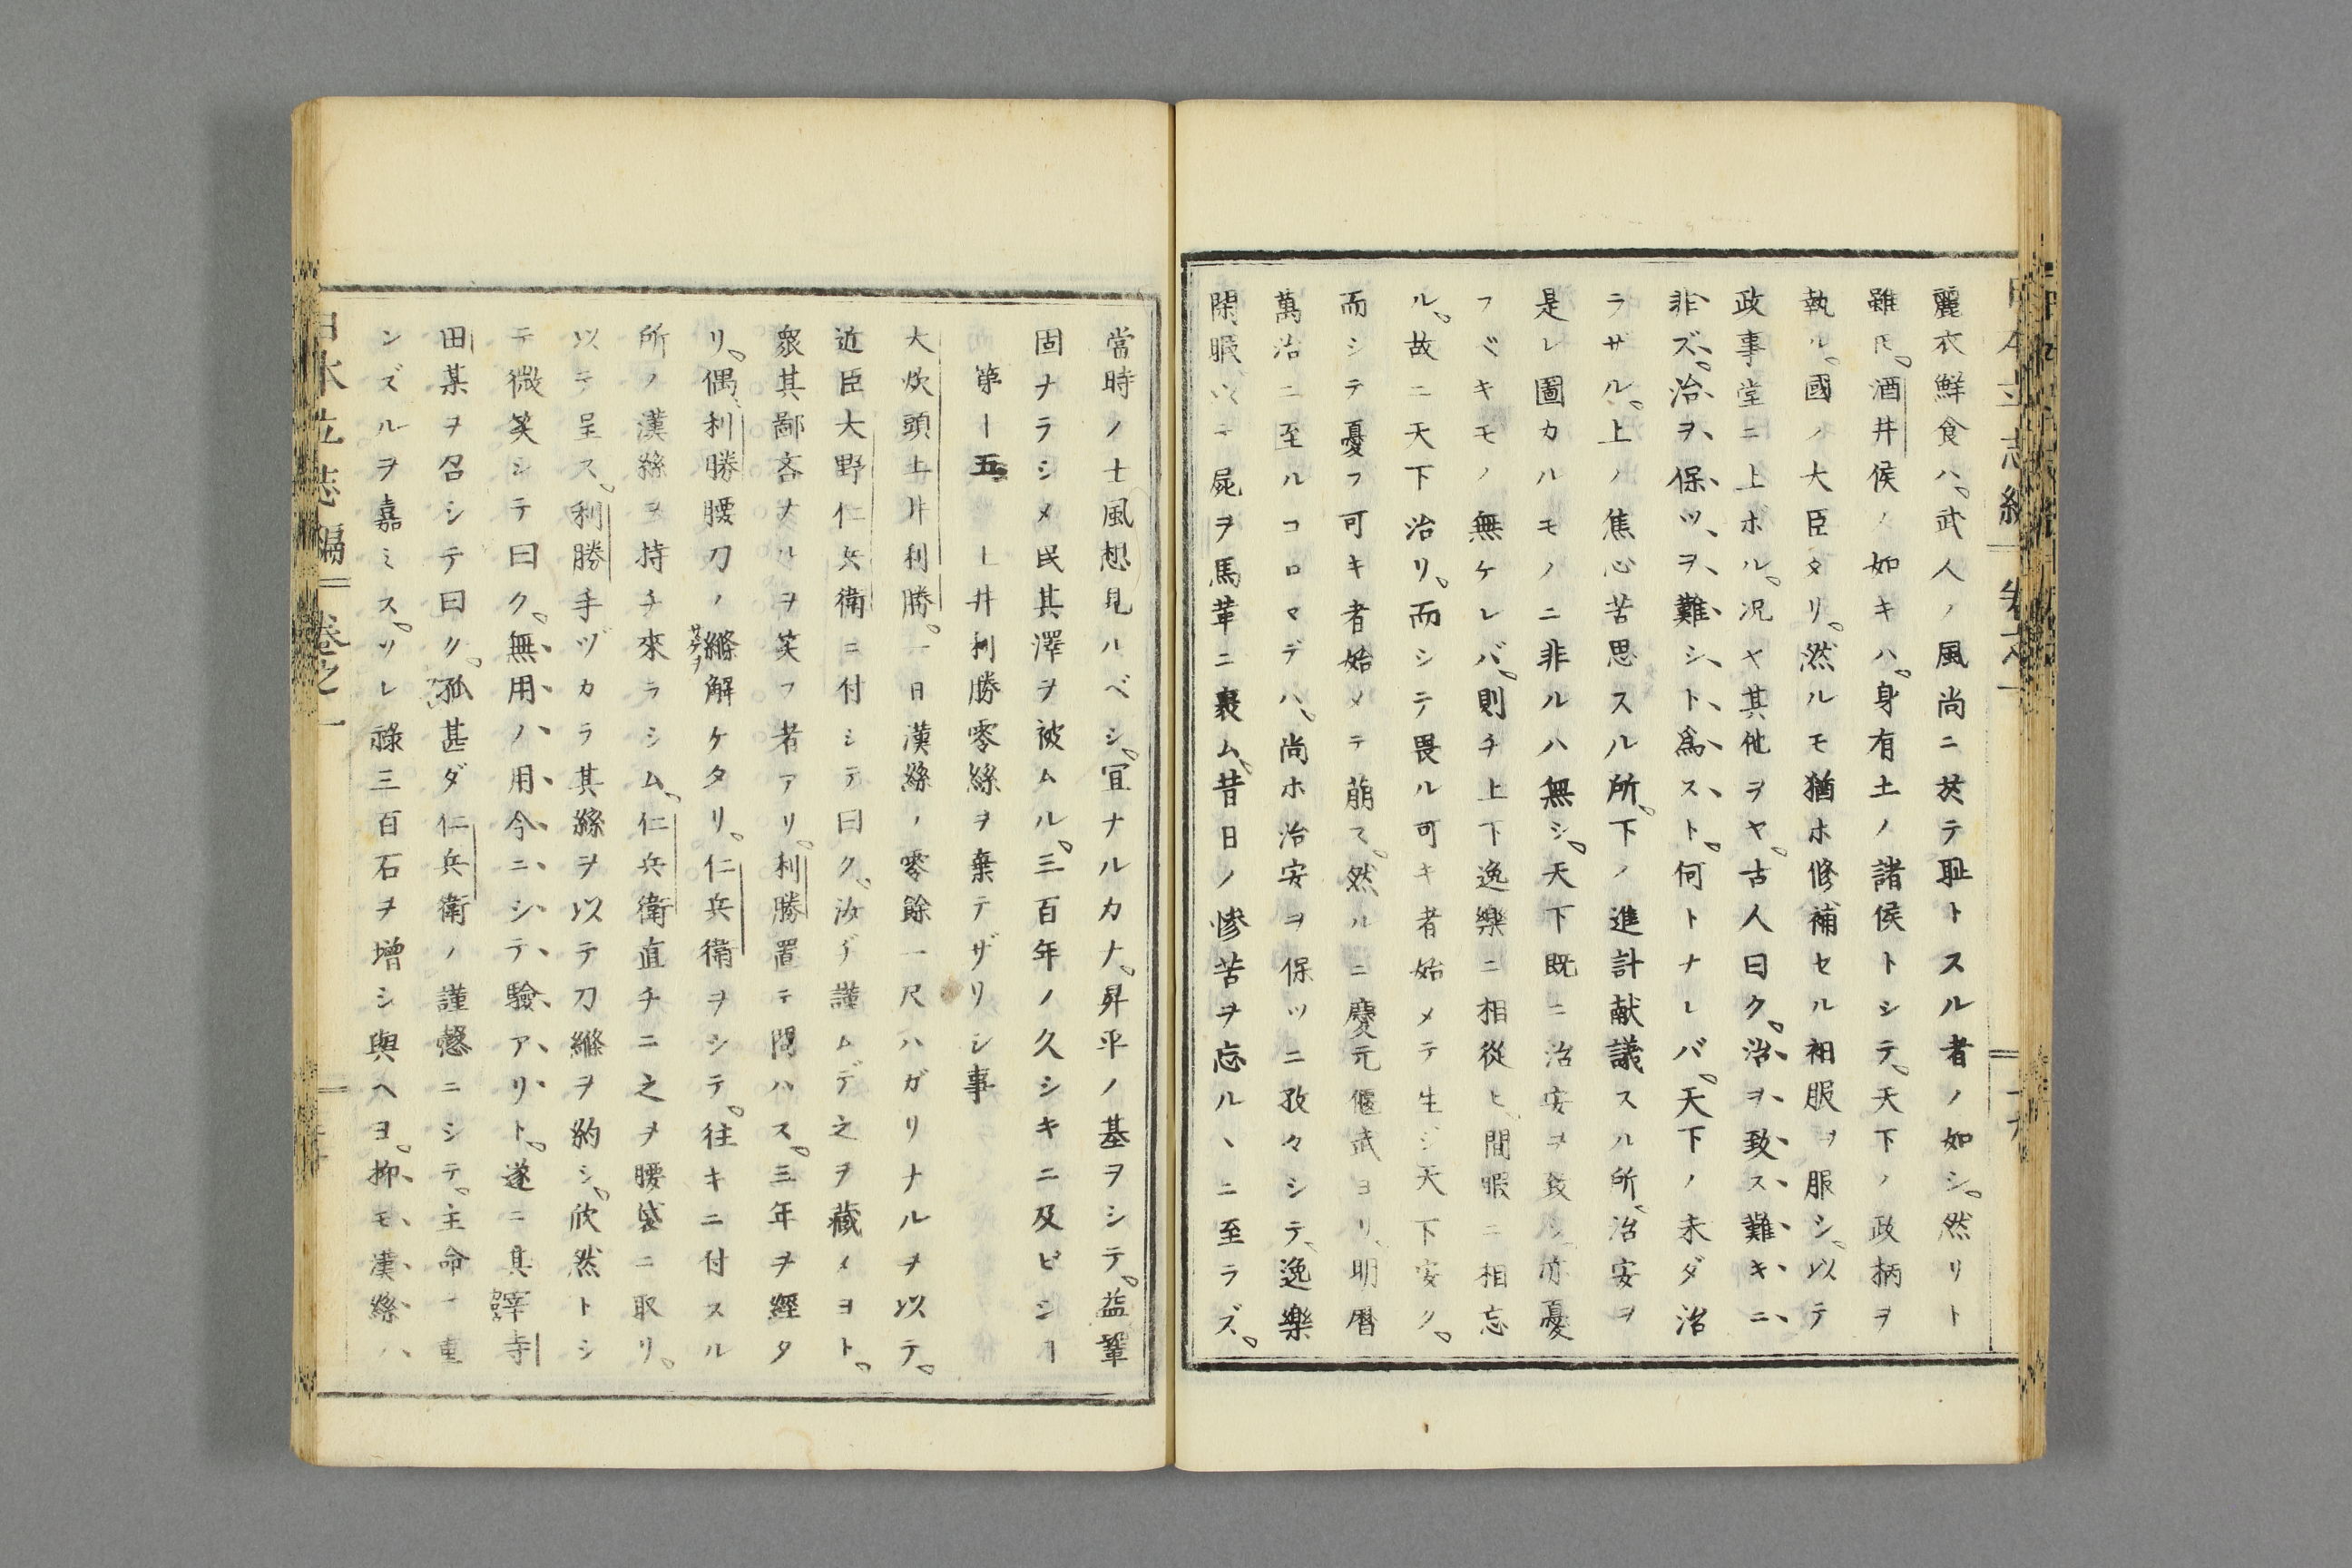 麗衣鮮食ハ。武人ノ風尚ニ於テ耻トスル者ノ如シ。然リト
雖𪜈。酒井侯ノ如キハ。身有土ノ諸侯トシテ。天下ノ政柄ヲ
執ル。國ノ大臣タリ。然ルモ猶ホ修補セル裀服ヲ服シ。以テ
政事堂ニ上ボル。况ヤ其他ヲヤ。古人曰ク。治ヲ致ス難キニ
非ズ。治ヲ保ツヲ難シト爲スト。何トナレバ。天下ノ未ダ治
ラザル。上ノ焦心苦思スル所。下ノ進計献議スル所。治安ヲ
是レ圖カルモノニ非ルハ無シ。天下既ニ治安ヲ致シ。亦憂
フベキモノ無ケレバ。則チ上下逸樂ニ相從ヒ。間暇ニ相忘
ル。故ニ天下治リ。而シテ畏ル可キ者始メテ生ジ天下安ク。
而シテ憂フ可キ者始メテ萠ス。然ルニ慶元偃武ヨリ。明暦
萬治ニ至ルコロマデハ。尚ホ治安ヲ保ツニ孜々シテ。逸樂
閑暇以テ屍ヲ馬革ニ裹ム。昔日ノ慘苦ヲ忘ルヽニ至ラズ。
當時ノ士風想見ルベシ。宜ナルカナ。昇平ノ基ヲシテ。益鞏
固ナラシメ民其澤ヲ被ムル。三百年ノ久シキニ及ビシヿ
第十五 土井利勝零絲ヲ棄テザリシ事
大炊頭土井利勝。一日漢絲ノ零餘一尺ハガリナルヲ以テ。
近臣大野仁兵衛ニ付シテ曰ク。汝ヂ謹ムデ之ヲ藏メヨト。
衆其鄙吝ナルヲ笑フ者アリ。利勝置テ問ハス。三年ヲ經タ
リ。偶利勝腰刀ノ縧解ケタリ。仁兵衛ヲシテ。往キニ付スル
所ノ漢絲ヲ持チ來ラシム。仁兵衛直チニ之ヲ腰袋ニ取リ。
以テ呈ス。利勝手ヅカラ其絲ヲ以テ刀縧ヲ約シ。欣然トシ
テ微笑シテ曰ク。無用ノ用今ニシテ驗アリト。遂ニ其宰寺
田某ヲ召シテ曰ク。孤甚ダ仁兵衛ノ謹愨ニシテ。主命ヲ重
ンズルヲ嘉ミス。ソレ祿三百石ヲ増シ與ヘヨ。抑モ漢絲ハ
日本立志編 卷之一